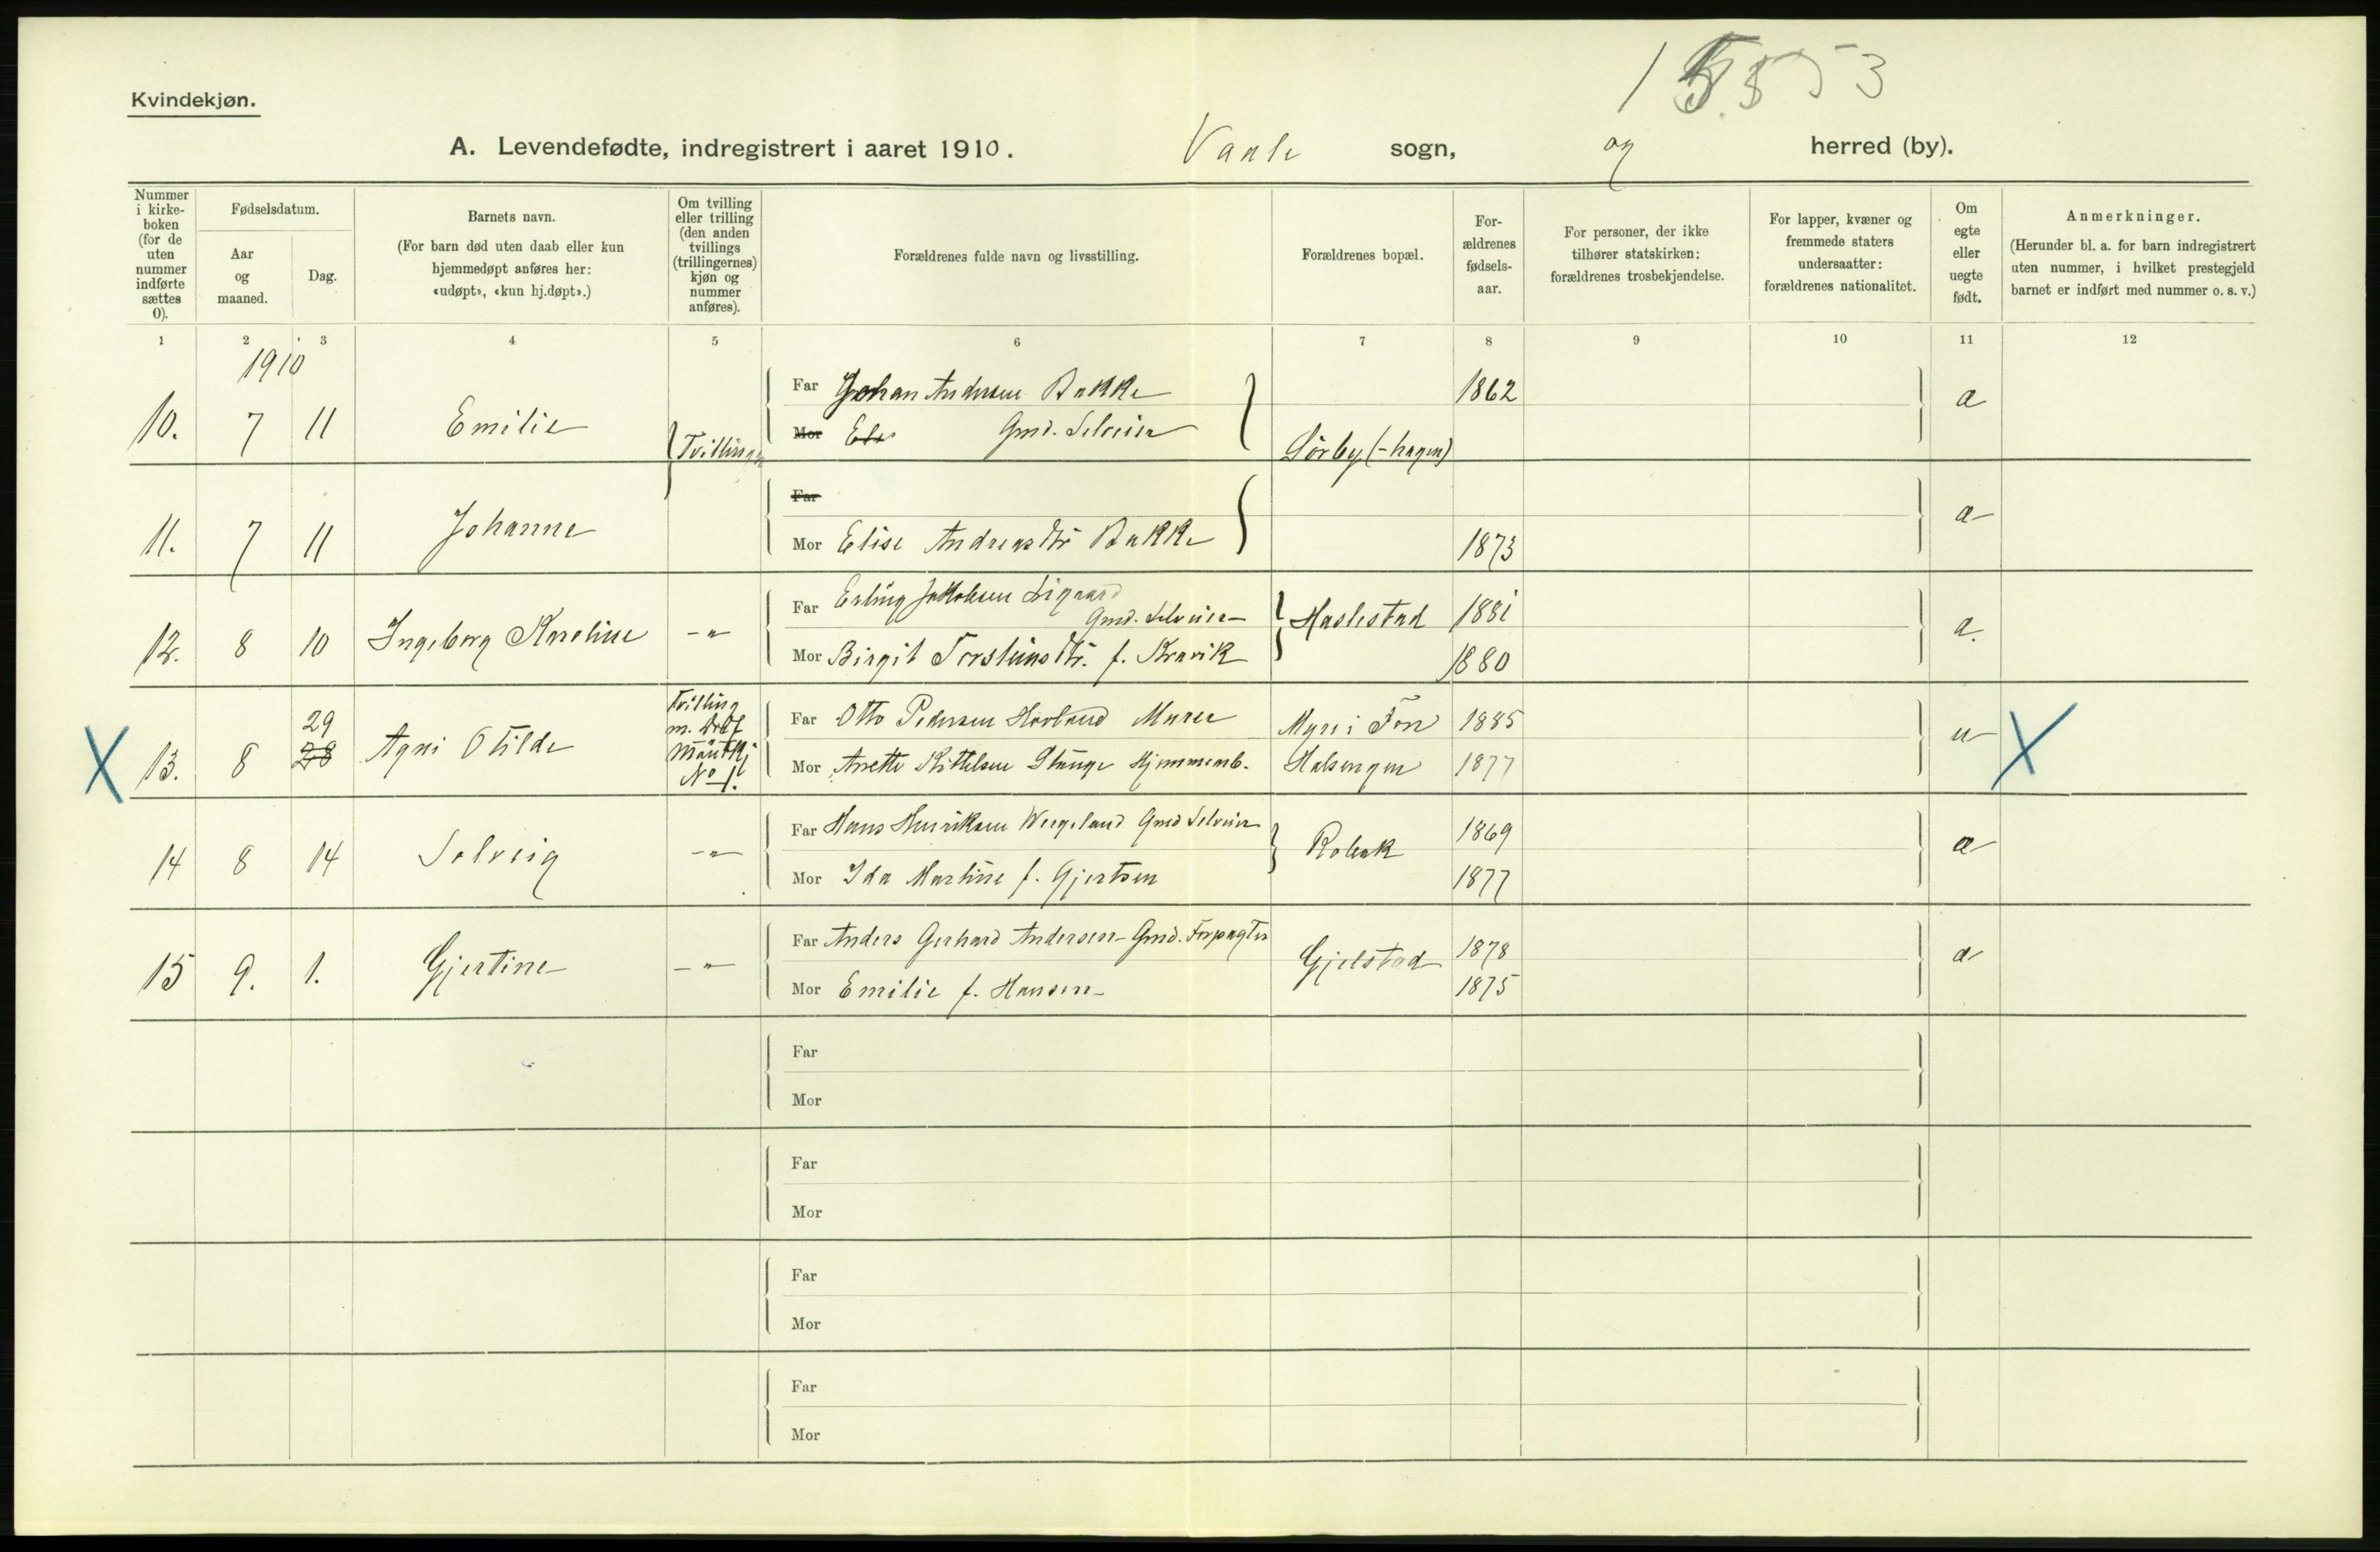 Kvindekjøn.
A. Levendefødte, indregistrert i aaret 1910. Vaale sogn, og herred (by).
Nummer i kirke-boken (for de uten nummer indførte sættes 0).
Fødselsdatum.
Aar og maaned.
Dag.
Barnets navn.
(For barn død uten daab eller kun hjemmedøpt anføres her: «udøpt», «kun hj.døpt».)
Om tvilling eller trilling (den anden tvillings (trillingernes) kjøn og nummer anføres).
Forældrenes fulde navn og livsstilling.
Forældrenes bopæl.
For-ældrenes fødsels-aar.
For personer, der ikke tilhører statskirken: forældrenes trosbekjendelse.
For lapper, kvæner og fremmede staters undersaatter: forældrenes nationalitet.
Om egte eller uegte født.
Anmerkninger.
(Herunder bl. a. for barn indregistrert uten nummer, i hvilket prestegjeld barnet er indført med nummer o. s. v.)
1 2 3 4 5 6 7 8 9 10 11 12
1910
Far Johan Andersen Bakke 1862
10. 7 11 Emilie Tvillinger Mor Gmd. Selveier Sørby (-hagen) a
Far
11. 7 11 Johanne Mor Elise Andreasdtr Bakke 1873 a
Far Erling Jakobsen Ligaard Gmd. Selveier Haslestad 1881
12. 8 10 Ingeborg Karoline -"- Mor Birgit Torsteinsdtr. f. Kravik 1880 a.
29 Tvilling Far Otto Pedersen Hovland Murer Myri i Fon 1885
X 13. 8 28 Agni Otilde No 1. Mor Anette Kittelsen Stange Hjemmemb. Halsengen 1877 u X
Far Hans Henriksen Wergeland Gmd Selveier 1869
14 8 14 Solveig -"- Mor Ida Martine f. Gjertsen Roberk 1877 a
Far Anders Gerhard Andersen Gmd. Forpagter 1878
15 9. 1. Gjertine -"- Mor Emilie f. Hansen Gjelstad 1875 a
Far
Mor
Far
Mor
Far
Mor
Far
Mor